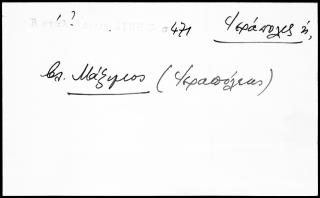 471 Ἱεράπολις ἡ,
Βλ. Μάξιμος (Ἱεραπόλεως)